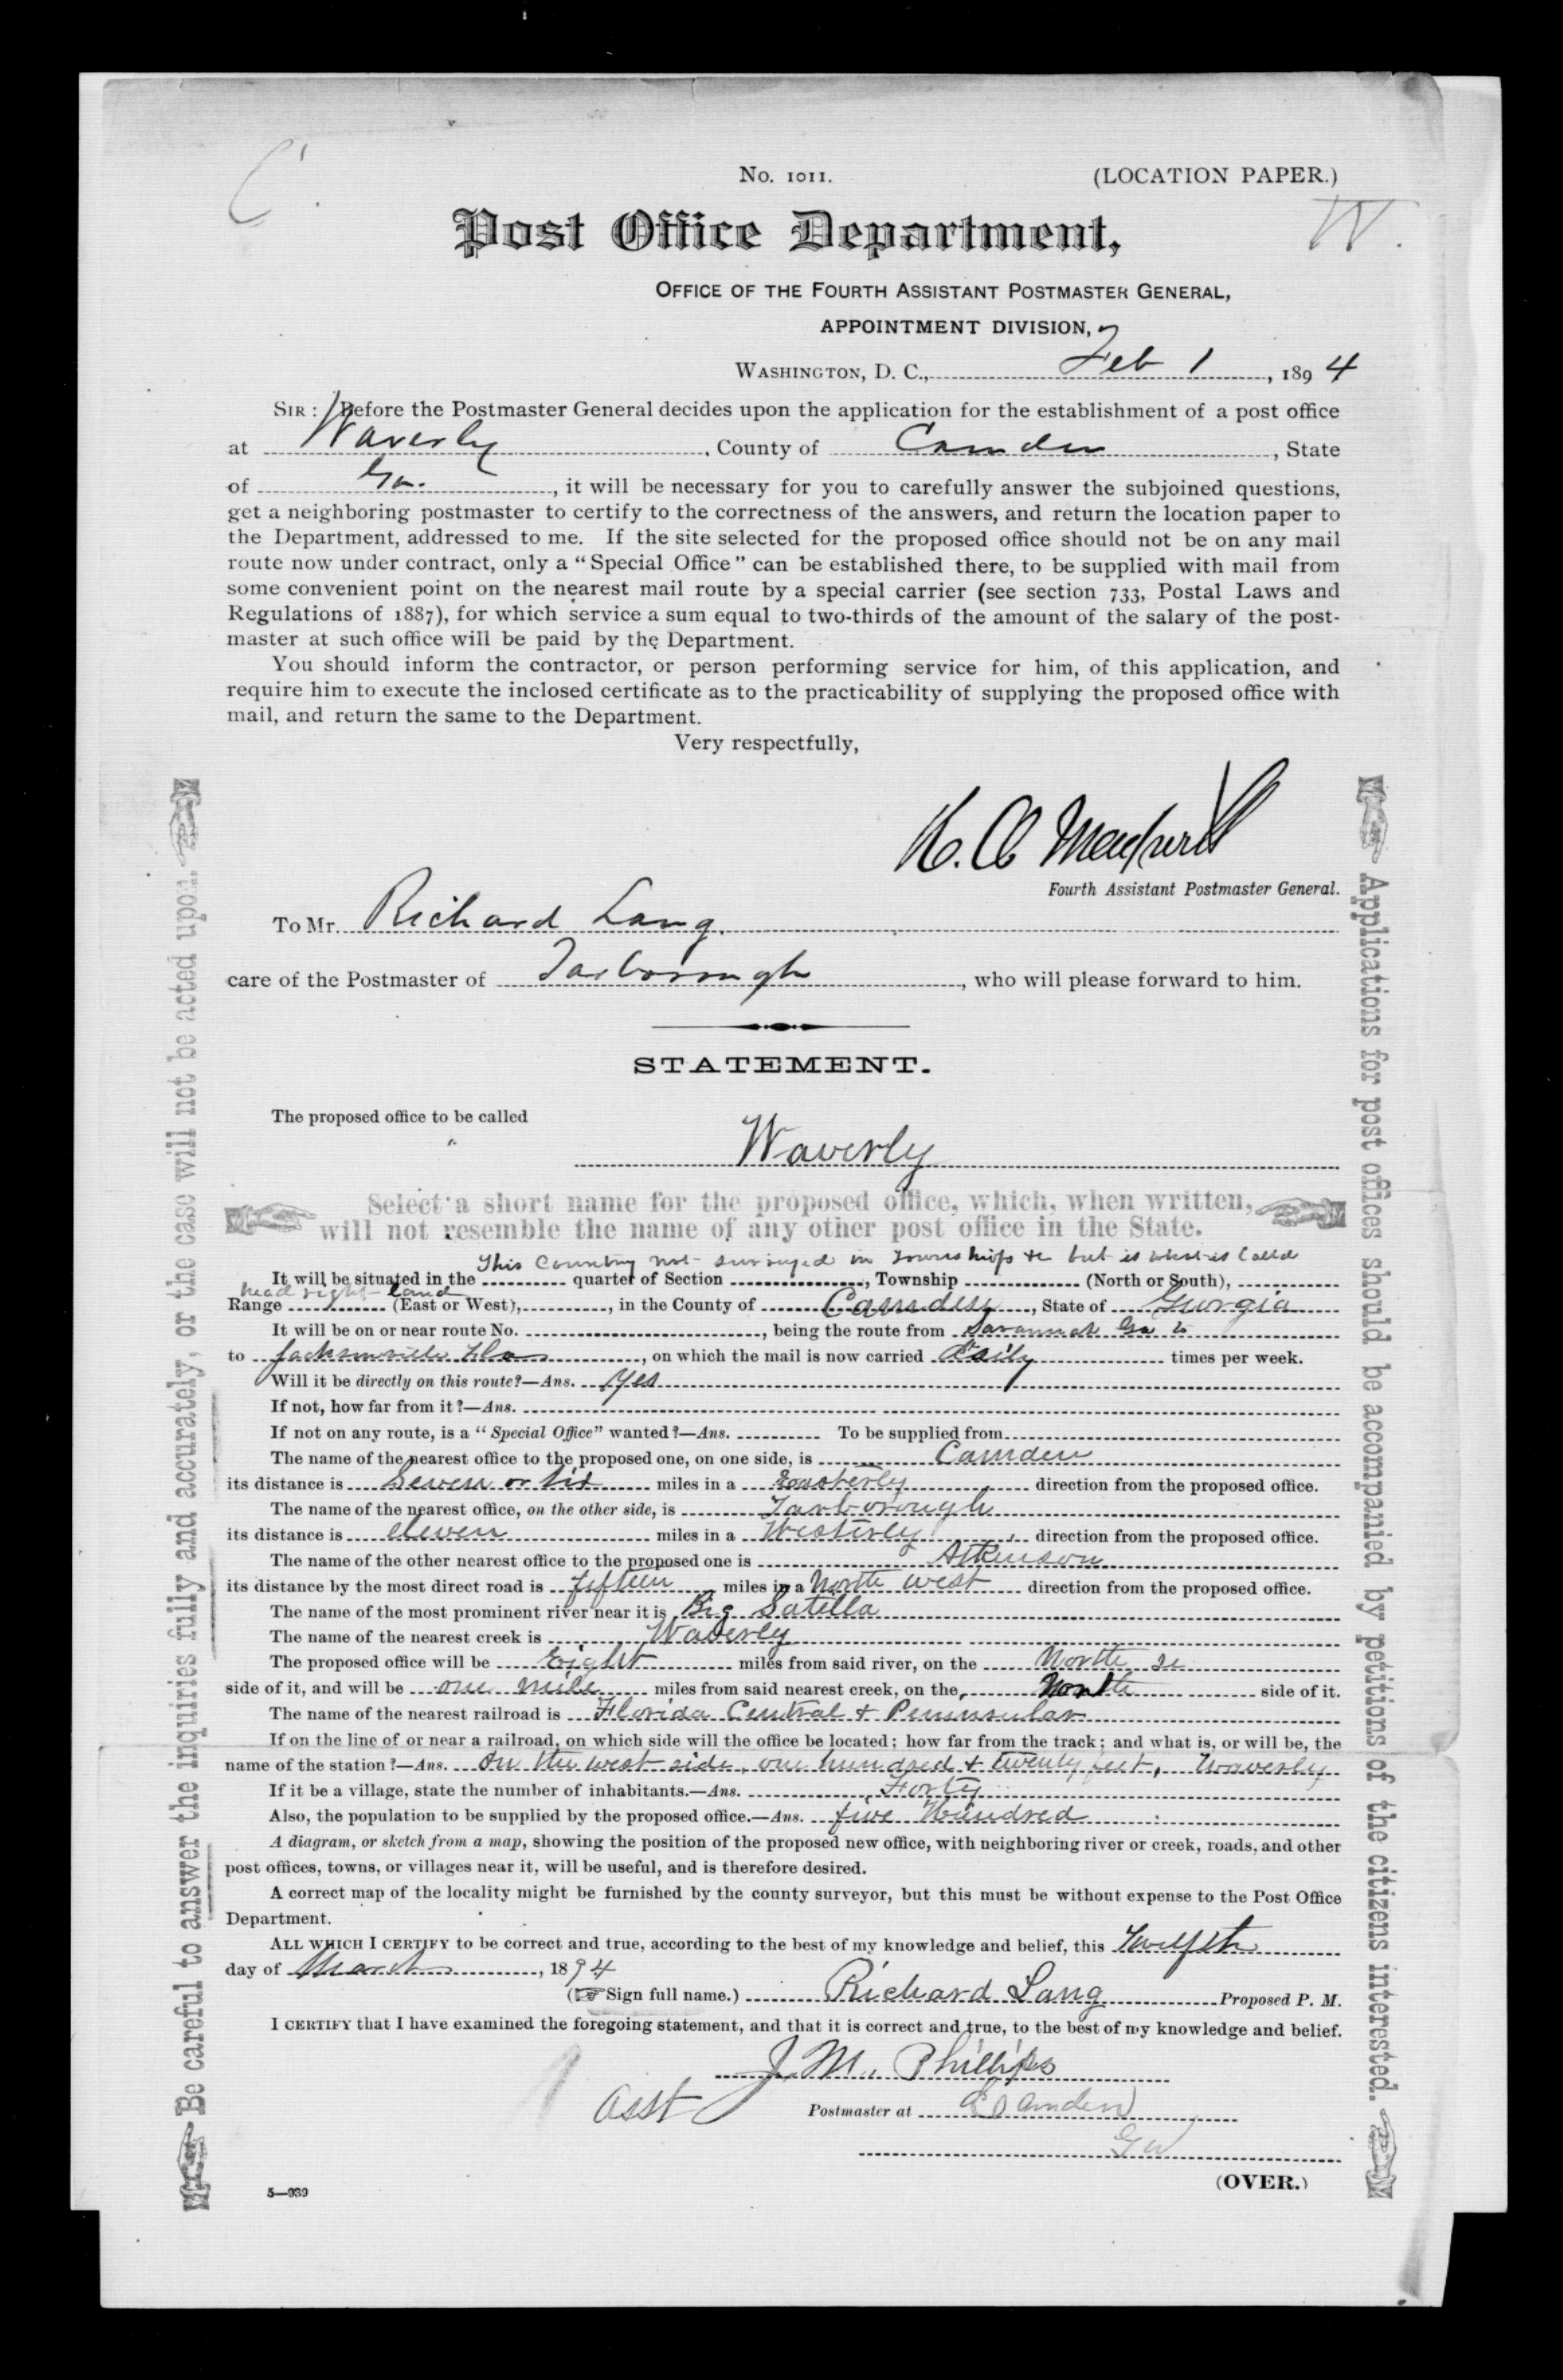 C.
No. 1011.
(LOCATION PAPER.)
W.
Post Office Department,
OFFICE OF THE FOURTH ASSISTANT POSTMASTER GENERAL,
APPOINTMENT DIVISION,
WASHINGTON, D. C., Feb 1, 1894
SIR: Before the Postmaster General decides upon the application for the establishment of a post office
at Waverly, County of Camden, State
of Ga., it will be necessary for you to carefully answer the subjoined questions,
get a neighboring postmaster to certify to the correctness of the answers, and return the location paper to
the Department, addressed to me. If the site selected for the proposed office should not be on any mail
route now under contract, only a "Special Office" can be established there, to be supplied with mail from
some convenient point on the nearest mail route by a special carrier (see section 733, Postal Laws and
Regulations of 1887), for which service a sum equal to two-thirds of the amount of the salary of the post-
master at such office will be paid by the Department.
You should inform the contractor, or person performing service for him, of this application, and
require him to execute the inclosed certificate as to the practicability of supplying the proposed office with
mail, and return the same to the Department.
Very respectfully,
Fourth Assistant Postmaster General.
To Mr. Richard Lang.
care of the Postmaster of Tarborough, who will please forward to him.
STATEMENT.
The proposed office to be called
Waverly
Select a short name for the proposed office, which, when written,
will not resemble the name of any other post office in the State.
This Country not surveyed in Townships &c but is what is Called
It will be situated in the quarter of Section, Township (North or South),
head right land
Range (East or West), , in the County of Camden, State of Georgia
It will be on or near route No. , being the route from Savannah Ga to
to Jacksonville Fla, on which the mail is now carried Daily times per week.
Will it be directly on this route?—Ans. Yes
If not, how far from it?—Ans.
If not on any route, is a "Special Office" wanted?—Ans. To be supplied from
The name of the nearest office to the proposed one, on one side, is Camden
its distance is Seven or Six miles in a Easterly direction from the proposed office.
The name of the nearest office, on the other side, is Tarborough
its distance is eleven miles in a Westerly direction from the proposed office.
The name of the other nearest office to the proposed one is Atkinson
its distance by the most direct road is fifteen miles in a North west direction from the proposed office.
The name of the most prominent river near it is Big Satilla
The name of the nearest creek is Waverly
The proposed office will be Eight miles from said river, on the North
side of it, and will be one mile miles from said nearest creek, on the North side of it.
The name of the nearest railroad is Florida Central & Peninsular
If on the line of or near a railroad, on which side will the office be located; how far from the track; and what is, or will be, the
name of the station?—Ans. On the west side, one hundred & twenty feet, Waverly
If it be a village, state the number of inhabitants.—Ans. Forty
Also, the population to be supplied by the proposed office.—Ans. five Hundred
A diagram, or sketch from a map, showing the position of the proposed new office, with neighboring river or creek, roads, and other
post offices, towns, or villages near it, will be useful, and is therefore desired.
A correct map of the locality might be furnished by the county surveyor, but this must be without expense to the Post Office
Department.
ALL WHICH I CERTIFY to be correct and true, according to the best of my knowledge and belief, this Twelfth
day of March, 1894
(Sign full name.) Richard Lang Proposed P. M.
I CERTIFY that I have examined the foregoing statement, and that it is correct and true, to the best of my knowledge and belief.
J. M. Phillips
asst Postmaster at Camden
Ga
(OVER.)
5—939
Be careful to answer the inquiries fully and accurately, or the case will not be acted upon.
Applications for post offices should be accompanied by petitions of the citizens interested.